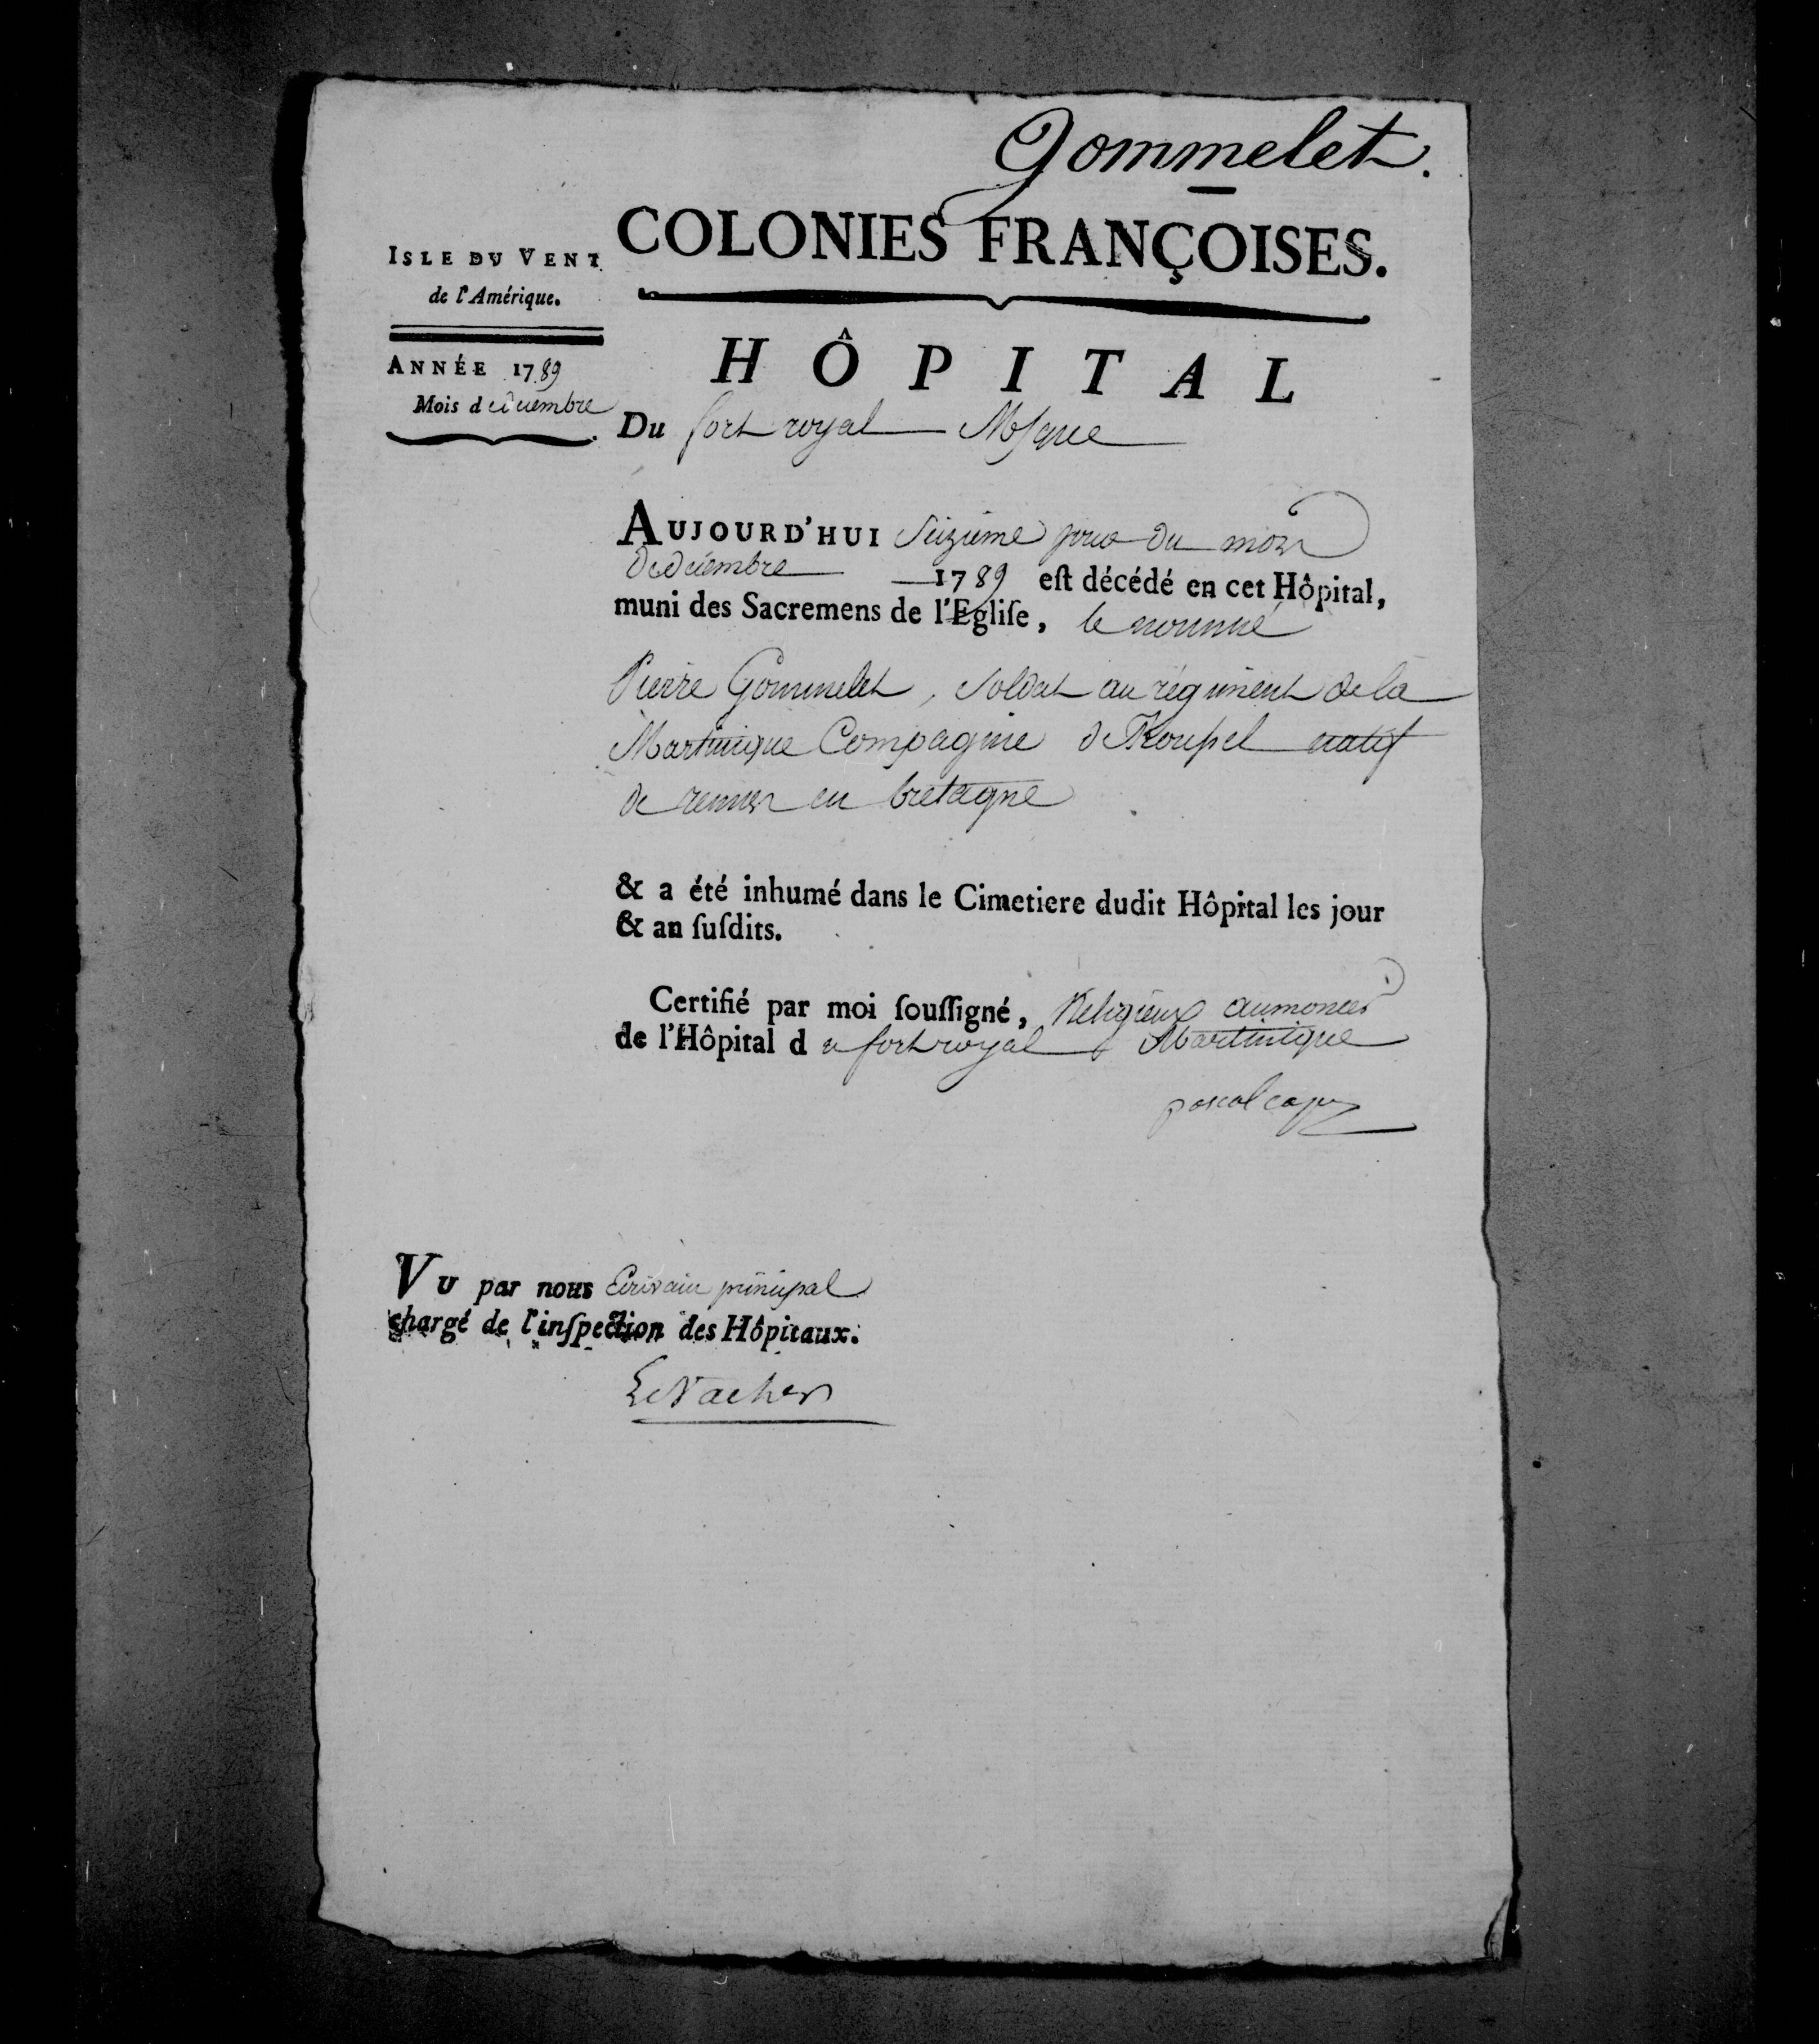 Gommelet.
COLONIES FRANÇOISES.
ISLE DU VENT
de l'Amérique.
ANNÉE 1789
Mois de décembre
HÔPITAL
Du fort royal Mque
AUJOURD'HUI Seizieme jour du mois
de décembre 1789 eſt décédé en cet Hôpital,
muni des Sacremens de l'Egliſe, le nommé
Pierre Gommelet, soldat au régiment de la
Martinique Compagnie de natif
de rennes en bretagne
& a été inhumé dans le Cimetiere dudit Hôpital les jour
& an ſuſdits.
Certifié par moi ſouſſigné, Religieux aumonier
de l'Hôpital du fort royal Martinique
pascal capn
VU par nous Ecrivain principal
chargé de l'inſpection des Hôpitaux.
LeVacher